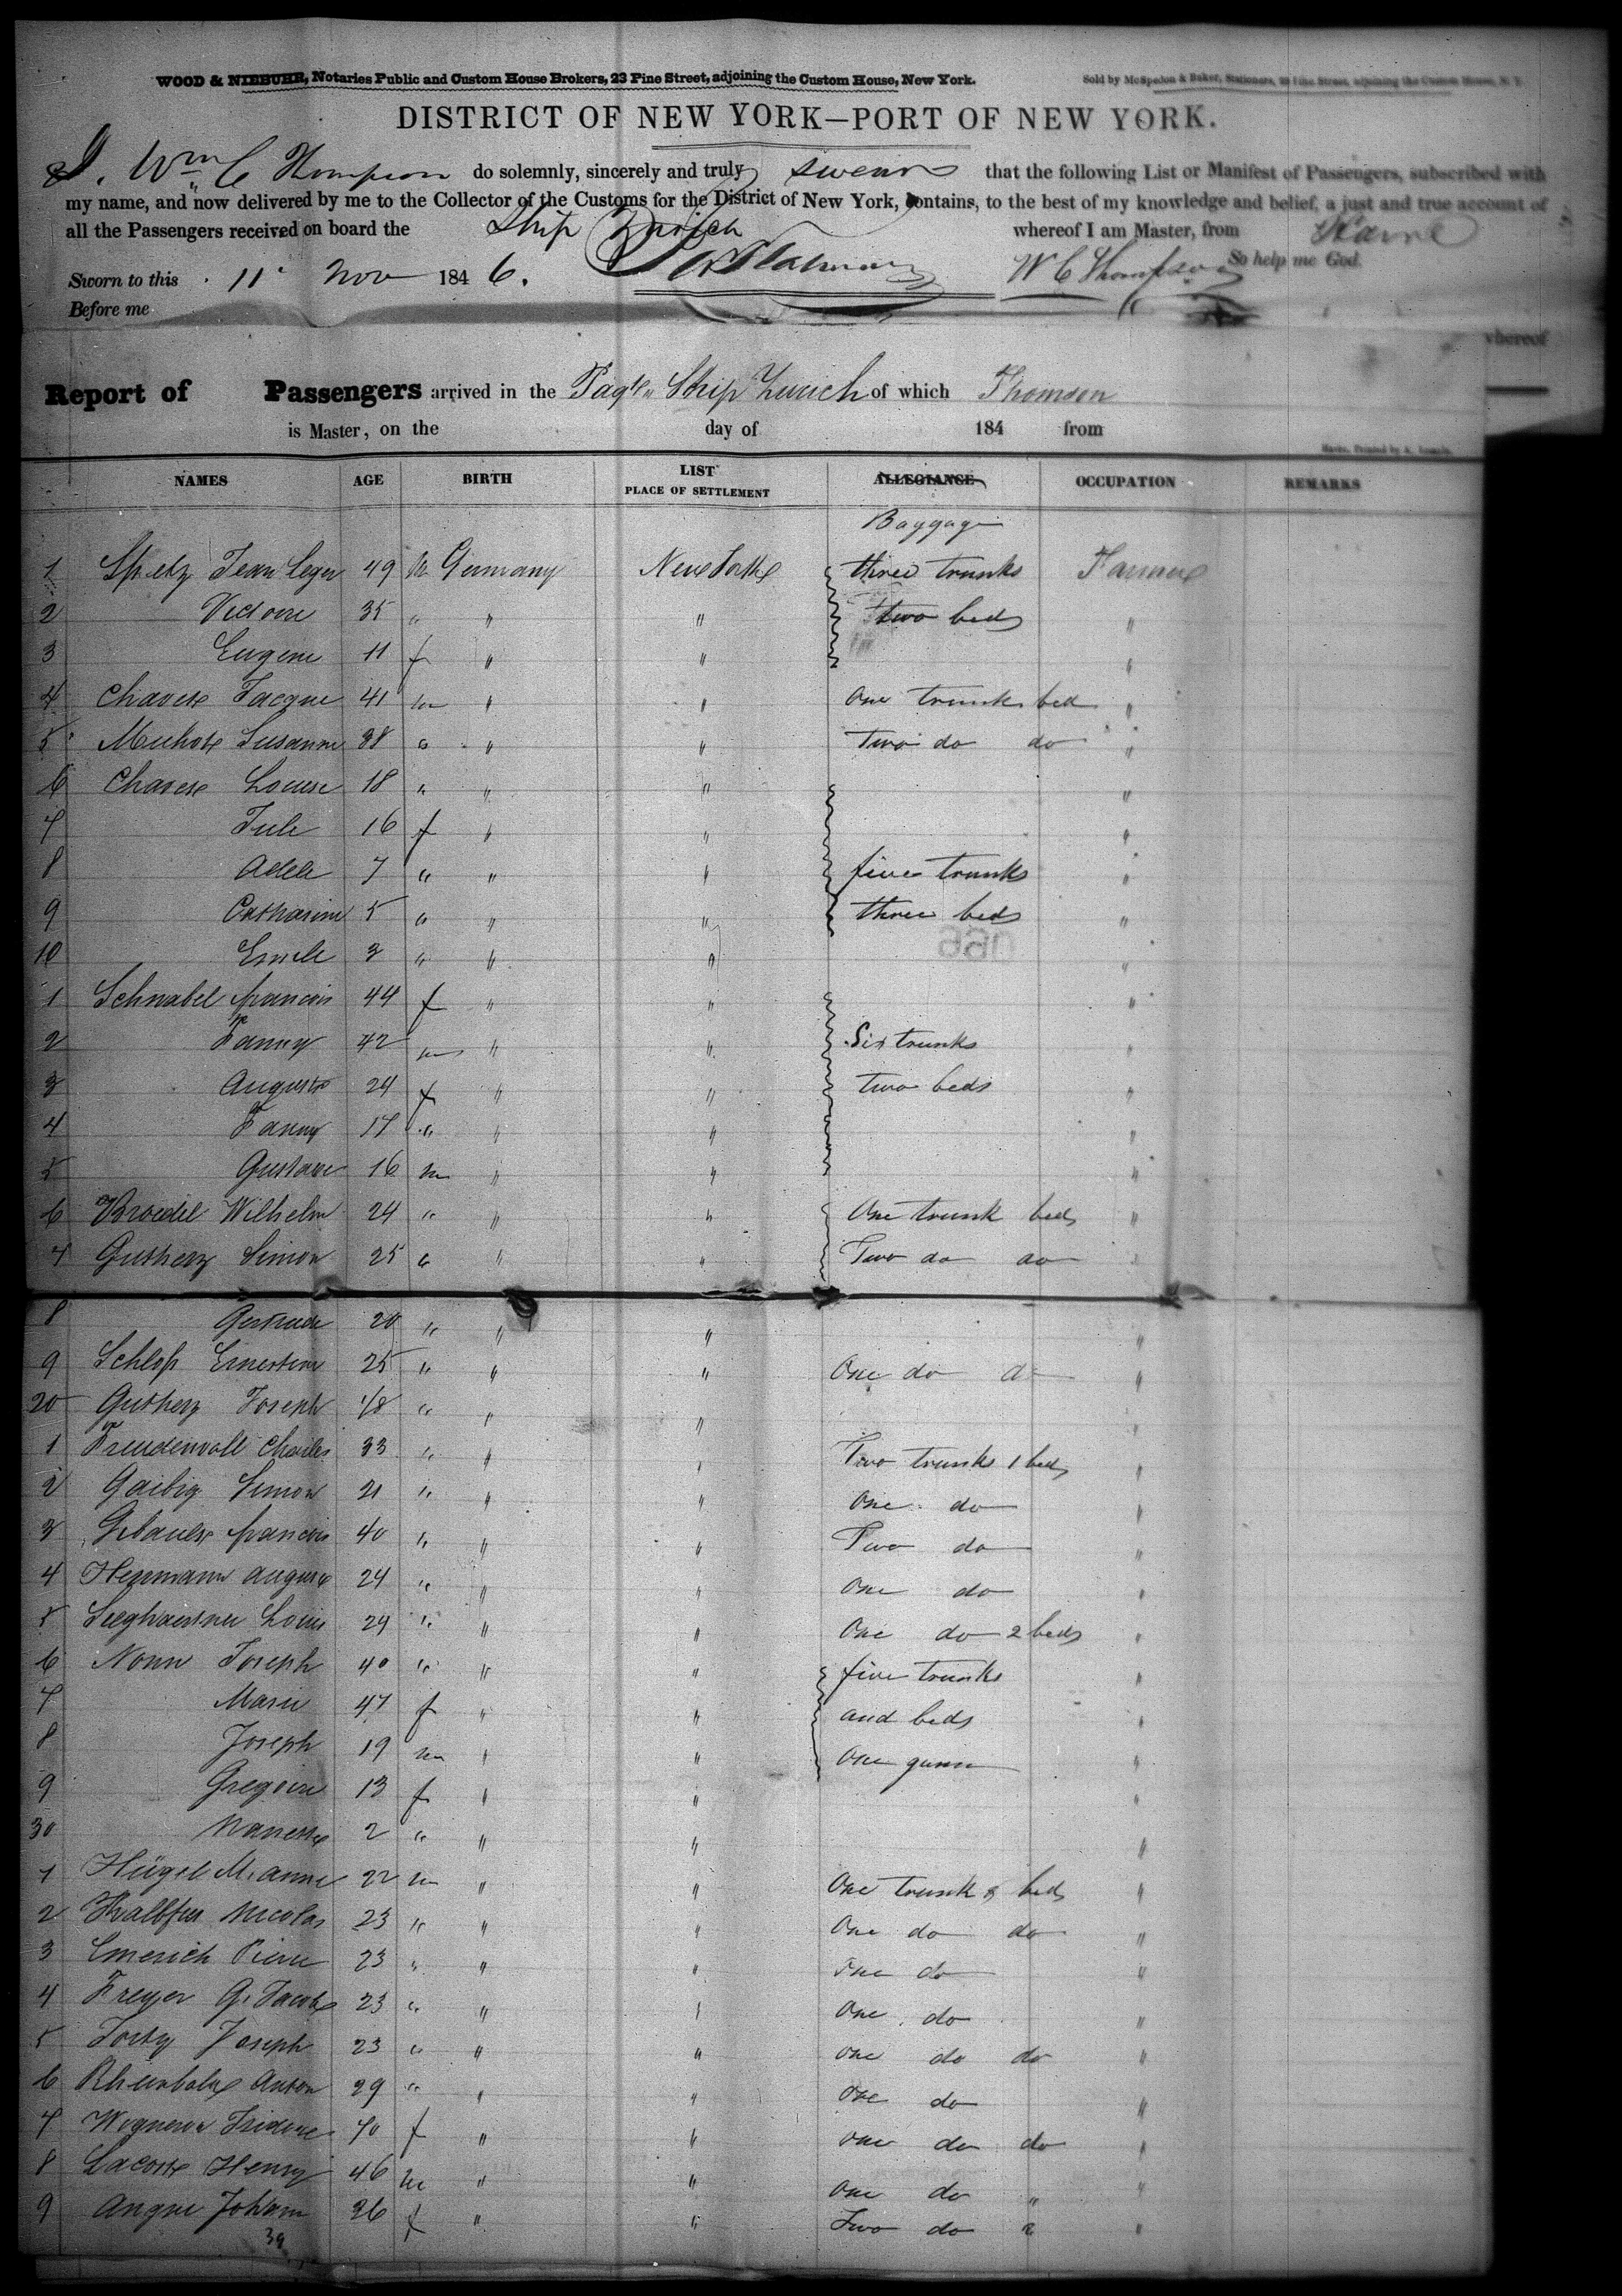 WOOD & NIEBUHR, Notaries Public and Custom House Brokers, 23 Pine Street, adjoining the Custom House, New York.
Sold by McSpedon & Baker, Stationers, 25 Pine Street, adjoining the Custom House, N. Y.
DISTRICT OF NEW YORK—PORT OF NEW YORK.
I, Wm C Thompson do solemnly, sincerely and truly swear that the following List or Manifest of Passengers, subscribed with
my name, and now delivered by me to the Collector of the Customs for the District of New York, contains, to the best of my knowledge and belief, a just and true account of
all the Passengers received on board the Ship Zurich whereof I am Master, from Havre
So help me God.
Sworn to this 11 Nov 1846. W C Thompson
Before me
whereof
Report of Passengers arrived in the Ship Zurich of which Thomson
is Master, on the day of 184 from
NAMES AGE BIRTH LIST PLACE OF SETTLEMENT ALLEGIANCE OCCUPATION REMARKS
Baggage
1 Spetz Jean Leger 49 m Germany New York three trunks Farmer
2 Victoire 35 " " " two beds "
3 Eugene 11 f " " "
4 Jacque 41 m " " one trunk bed "
5 Susanne 38 " " " Two do do "
6 Louise 18 " " " "
7 Jule 16 f " " "
8 Adele 7 " " " five trunks "
9 Catharine 5 " " " three beds "
10 Emile 3 " " " "
1 Schnabel francois 44 f " " "
2 Fanny 42 m " " Six trunks "
3 Auguste 24 f " " two beds "
4 Fanny 17 " " " "
5 Gustave 16 m " " "
6 Broedel Wilhelm 24 " " " One trunk beds "
7 Gutherz Simon 25 " " " Two do do "
8 Gertrude 20 " " " "
9 Schloss Ernestine 25 " " " One do do "
20 Gutherz Joseph 18 " " " "
1 Freudenvoll Charles 33 " " " Two trunks 1 beds "
2 Gaibig Simon 21 " " " One do "
3 francois 40 " " " Two do "
4 Herrmann August 24 " " " One do "
5 Louis 24 " " " One do 2 beds "
6 Nonn Joseph 40 " " " five trunks "
7 Marie 47 f " " and beds "
8 Joseph 19 m " " One gunn "
9 Gregoire 13 f " " "
30 Nanette 2 " " " "
1 Hügel M. anne 22 m " " One trunk & beds "
2 Kalbfus Nicolas 23 " " " One do do "
3 Emerich Pierre 23 " " " One do "
4 Freyer G. Jacob 23 " " " One do "
5 Joseph 23 " " " one do do "
6 Anton 29 " " " one do "
7 Isidore 40 f " " one do do "
8 Lacoste Henry 46 m " " one do " "
9 Angne Johann 26 f " " Two do 2 "
39